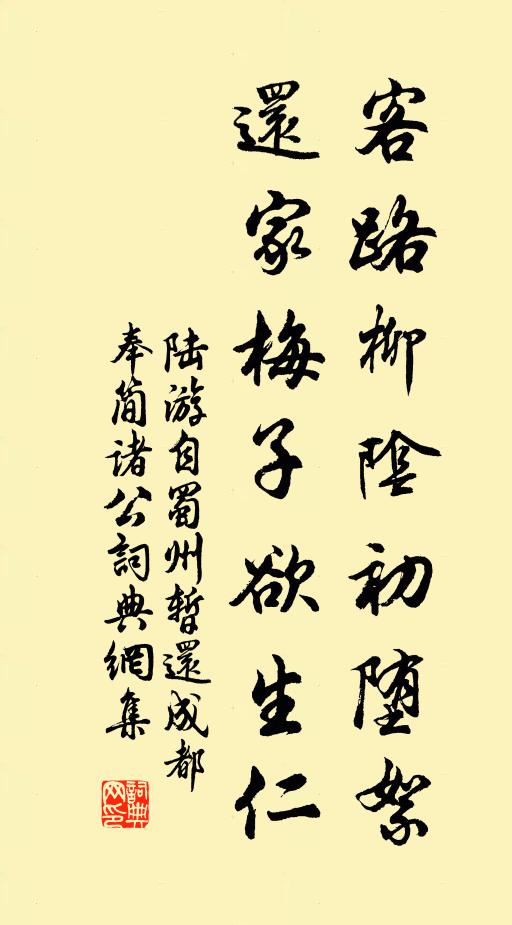 客路柳陰初堕絮
還家梅子欲生仁
陆游自蜀州暫還成都
奉简诸公詞典網集
詞典網印